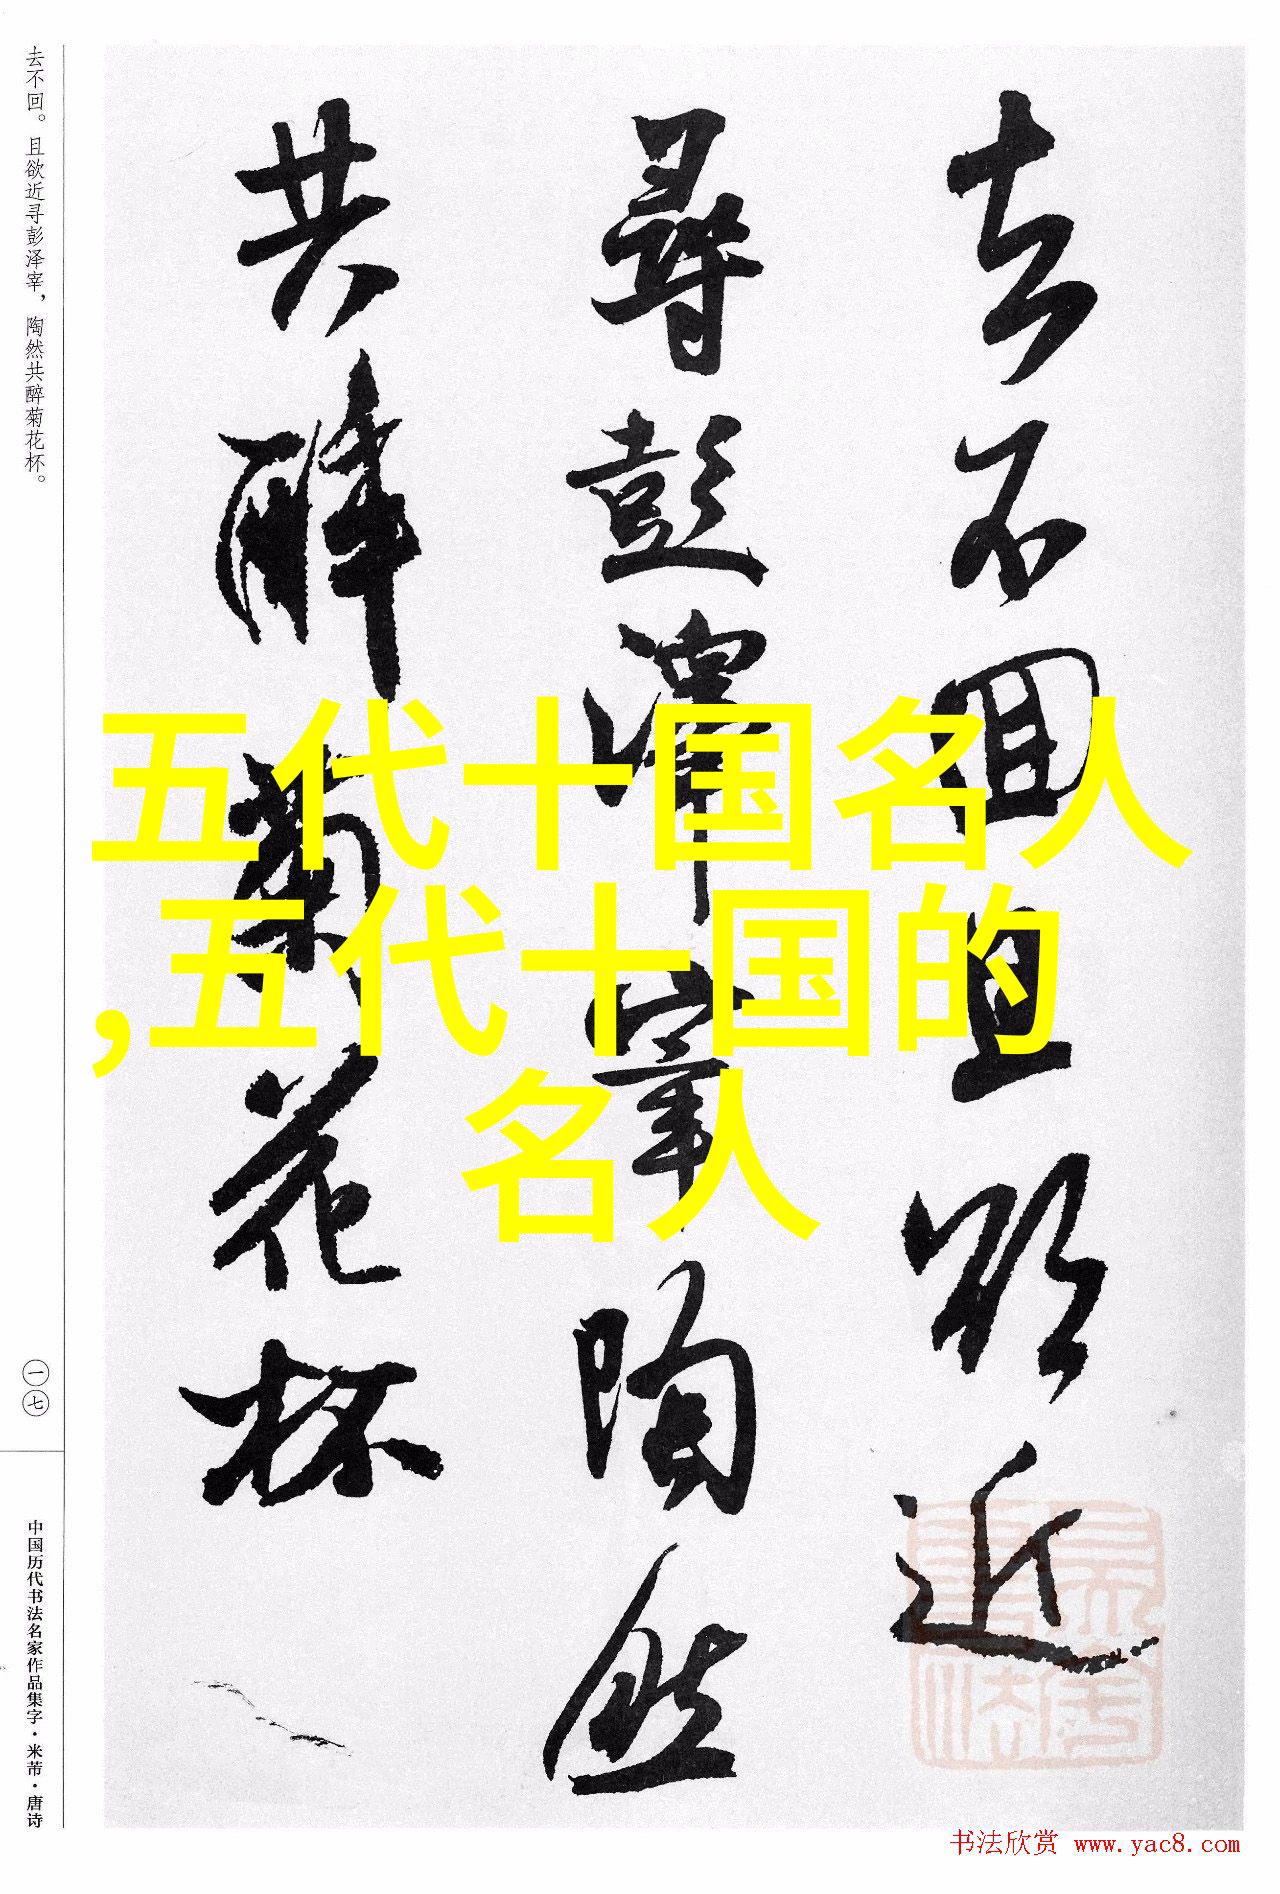 去不回。且欲近寻彭泽宰，陶然共醉菊花杯。
去不回且欲近
尋彭澤宰陶然
共醉菊花杯
五代十国名人
,五代十国的
名人
一七
中国历代书法名家作品集字·米芾·唐诗
书法欣赏 www.yac8.com